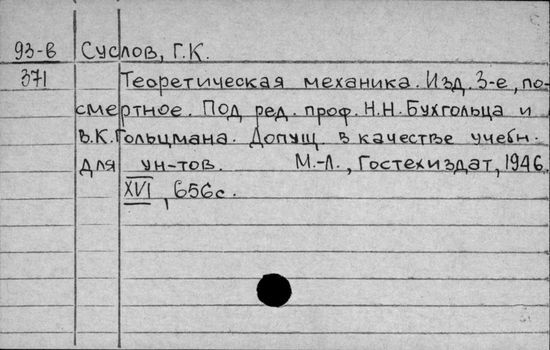 93-в Суслов, Г.К.
371 Теоретическая механика. Изд. 3-е, по-
смертное. Под ред. проф. Н.Н. Бухгольца и
В.К. Гольцмана. Допущ. в качестве учебн.
для ун-тов. М.-Л., Гостехиздат, 1946.
XVI, 656с.